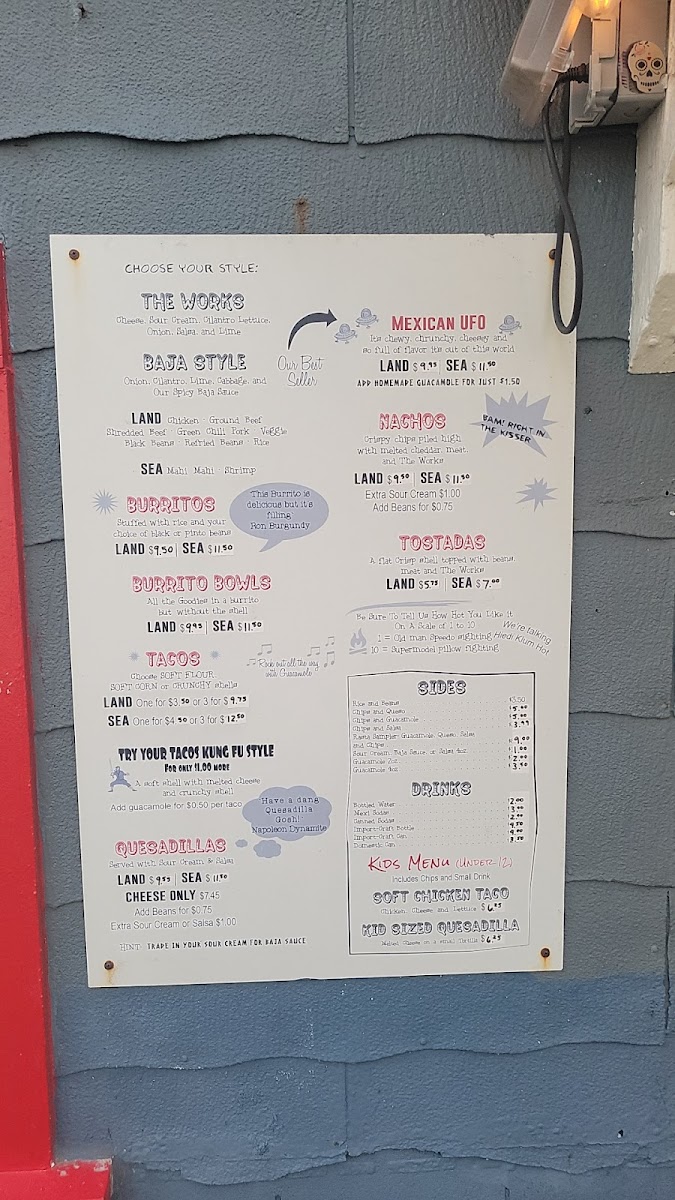 CHOOSE YOUR STYLE:
THE WORKS
Cheese, Sour Cream, Cilantro Lettuce,
Onion, Salsa, and Lime
BAJA STYLE
Onion, Cilantro, Lime, Cabbage, and
Our Spicy Baja Sauce
LAND Chicken · Ground Beef
Shredded Beef · Green Chili Pork · Veggie
Black Beans · Refried Beans · Rice
SEA Mahi Mahi · Shrimp
BURRITOS
Stuffed with rice and your
choice of black or pinto beans
LAND $9.50 | SEA $11.50
This Burrito is
delicious but it's
filling
Ron Burgundy
BURRITO BOWLS
All the Goodies in a burrito
but without the shell
LAND $9.95 | SEA $11.50
TACOS
Choose SOFT FLOUR,
SOFT CORN or CRUNCHY shells
LAND One for $3.50 or 3 for $9.75
SEA One for $4.50 or 3 for $12.50
Rock out all the way
with Guacamole
TRY YOUR TACOS KUNG FU STYLE
FOR ONLY $1.00 MORE
A soft shell with melted cheese
and crunchy shell
Add guacamole for $0.50 per taco
Have a dang
Quesadilla
Gosh!
Napoleon Dynamite
QUESADILLAS
Served with Sour Cream & Salsa
LAND $9.55 | SEA $11.50
CHEESE ONLY $7.45
Add Beans for $0.75
Extra Sour Cream or Salsa $1.00
HINT: TRADE IN YOUR SOUR CREAM FOR BAJA SAUCE
Our Best
Seller
MEXICAN UFO
Its chewy, chrunchy, cheesey and
so full of flavor its out of this world
LAND $9.95 | SEA $11.50
ADD HOMEMADE GUACAMOLE FOR JUST $1.50
NACHOS
Crispy chips piled high
with melted cheddar, meat,
and The Works
LAND $9.50 | SEA $11.50
Extra Sour Cream $1.00
Add Beans for $0.75
BAM! RIGHT IN
THE KISSER
TOSTADAS
A flat Crisp shell topped with beans,
meat and The Works
LAND $5.75 | SEA $7.00
Be Sure To Tell Us How Hot You Like it
On A Scale of 1 to 10
1 = Old man Speedo sighting
10 = Supermodel pillow fighting
We're talking
Hiedi Klum Hot
SIDES
Rice and Beans $3.50
Chips and Queso $5.00
Chips and Guacamole $5.00
Chips and Salsa $3.99
Rasta Sampler: Guacamole, Queso, Salsa
and Chips $9.00
Sour Cream, Baja Sauce, or Salsa 4oz. $1.00
Guacamole 2oz. $2.00
Guacamole 4oz. $3.50
DRINKS
Bottled Water $2.00
Mexi Sodas $3.00
Canned Sodas $2.00
Import-Craft Bottle $4.50
Import-Craft Can $4.00
Domestic Can $3.50
KIDS MENU (UNDER 12)
Includes Chips and Small Drink
SOFT CHICKEN TACO
Chicken, Cheese and Lettuce $6.25
KID SIZED QUESADILLA
Melted Cheese on a small Tortilla $6.25